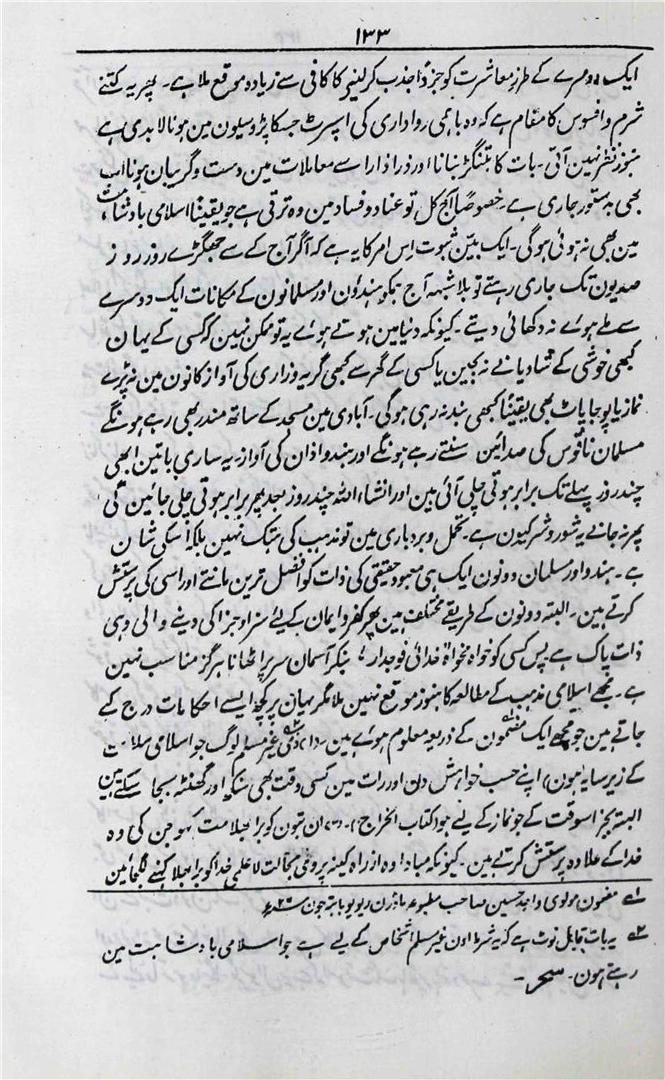 ۱۳۳
ایک دوسرے کے طرز معاشرت کو جزواً جذب کر لینے کا کافی سے زیادہ موقع ملا ہے۔ پھر یہ کتنے
شرم و افسوس کا مقام ہے کہ وہ باہمی رواداری کی اسپرٹ جسکا پڑوسیون مین ہونا لابدی ہے
ہنوز نظر نہین آتی۔ بات کا بتنگڑ بنانا اور ذرا ذرا سے معاملات مین دست و گریبان ہونا اب
بھی بدستور جاری ہے۔ خصوصاً آج کل تو عناد و فساد مین وہ ترقی ہے جو یقیناً اسلامی بادشاہت
مین بھی نہ ہوئی ہوگی۔ ایک بیّن ثبوت اِس امر کا یہ ہے کہ اگر آج کے سے جھگڑے روز روز
صدیون تک جاری رہتے تو بلا شبہہ آج ہمکو ہندوٴن اور مسلمانون کے مکانات ایک دوسرے
سے ملے ہوئے نہ دکھائی دیتے۔ کیونکہ دنیا مین ہوتے ہوئے یہ تو ممکن نہین کہ کسی کے یہان
کبھی خوشی کے شادیانے نہ بجین یا کسی کے گھر سے کبھی گریہ وزاری کی آواز کانون مین نہ پڑے
نماز یا پوجا پاٹ بھی یقیناً کبھی بند نہ رہی ہوگی۔ آبادی مین مسجد کے ساتھ مندر بھی رہے ہونگے
مسلمان ناقوس کی صدائین سنتے رہے ہونگے اور ہندو اذان کی آواز۔ یہ ساری باتین ابھی
چند روز پہلے تک برابر ہوتی چلی آئی ہین اور انشاء اللہ چند روز بعد پھر برابر ہوتی چلی جائین گی
پھر نہ جانے یہ شور و شر کیون ہے۔ تحمل و بردباری مین تو مذہب کی ہتک نہین بلکہ اسکی شان
ہے۔ ہندو اور مسلمان دونون ایک ہی معبود حقیقی کی ذات کو افضل ترین مانتے اور اسی کی پرستش
کرتے ہین۔ البتہ دونون کے طریقے مختلف ہین پھر کفر و ایمان کے لئے سزا و جزا کی دینے والی وہی
ذات پاک ہے پس کسی کو خواہ مخواہ خدائی فوجدار بنکر آسمان سر پر اٹھانا ہرگز مناسب نہین
ہے۔ مجھے اسلامی مذہب کے مطالعہ کا ہنوز موقع نہین ملا مگر یہان پر کچھ ایسے احکامات درج کے
جاتے ہین جو مجھے ایک مضمون کے ذریعہ معلوم ہوئے ہین۔ (۱) ذمی غیر مسلم لوگ جو اسلامی سلطنت
کے زیر سایہ ہون) اپنے حسب خواہش دن اور رات مین کسی وقت بھی سنکھ اور گھنٹہ بجا سکتے ہین
البتہ بجز اسوقت کے جو نماز کے لیے ہو (کتاب الخراج)۔ (۲) ان بتون کو برا بھلا مت کہو جن کی وہ
خدا کے علاوہ پرستش کرتے ہین۔ کیونکہ مبادا وہ از راہ کینہ پروری بحالت لاعلمی خدا کو برا بھلا کہنے لگجائین
۱ مضمون مولوی واجد حسین صاحب مطبوعہ ماڈرن ریویو بابتہ جون
۲ یہ بات قابل نوٹ ہے کہ یہ شرط اون غیر مسلم اشخاص کے لیے ہے جو اسلامی بادشاہت مین
رہتے ہون۔ سحر۔